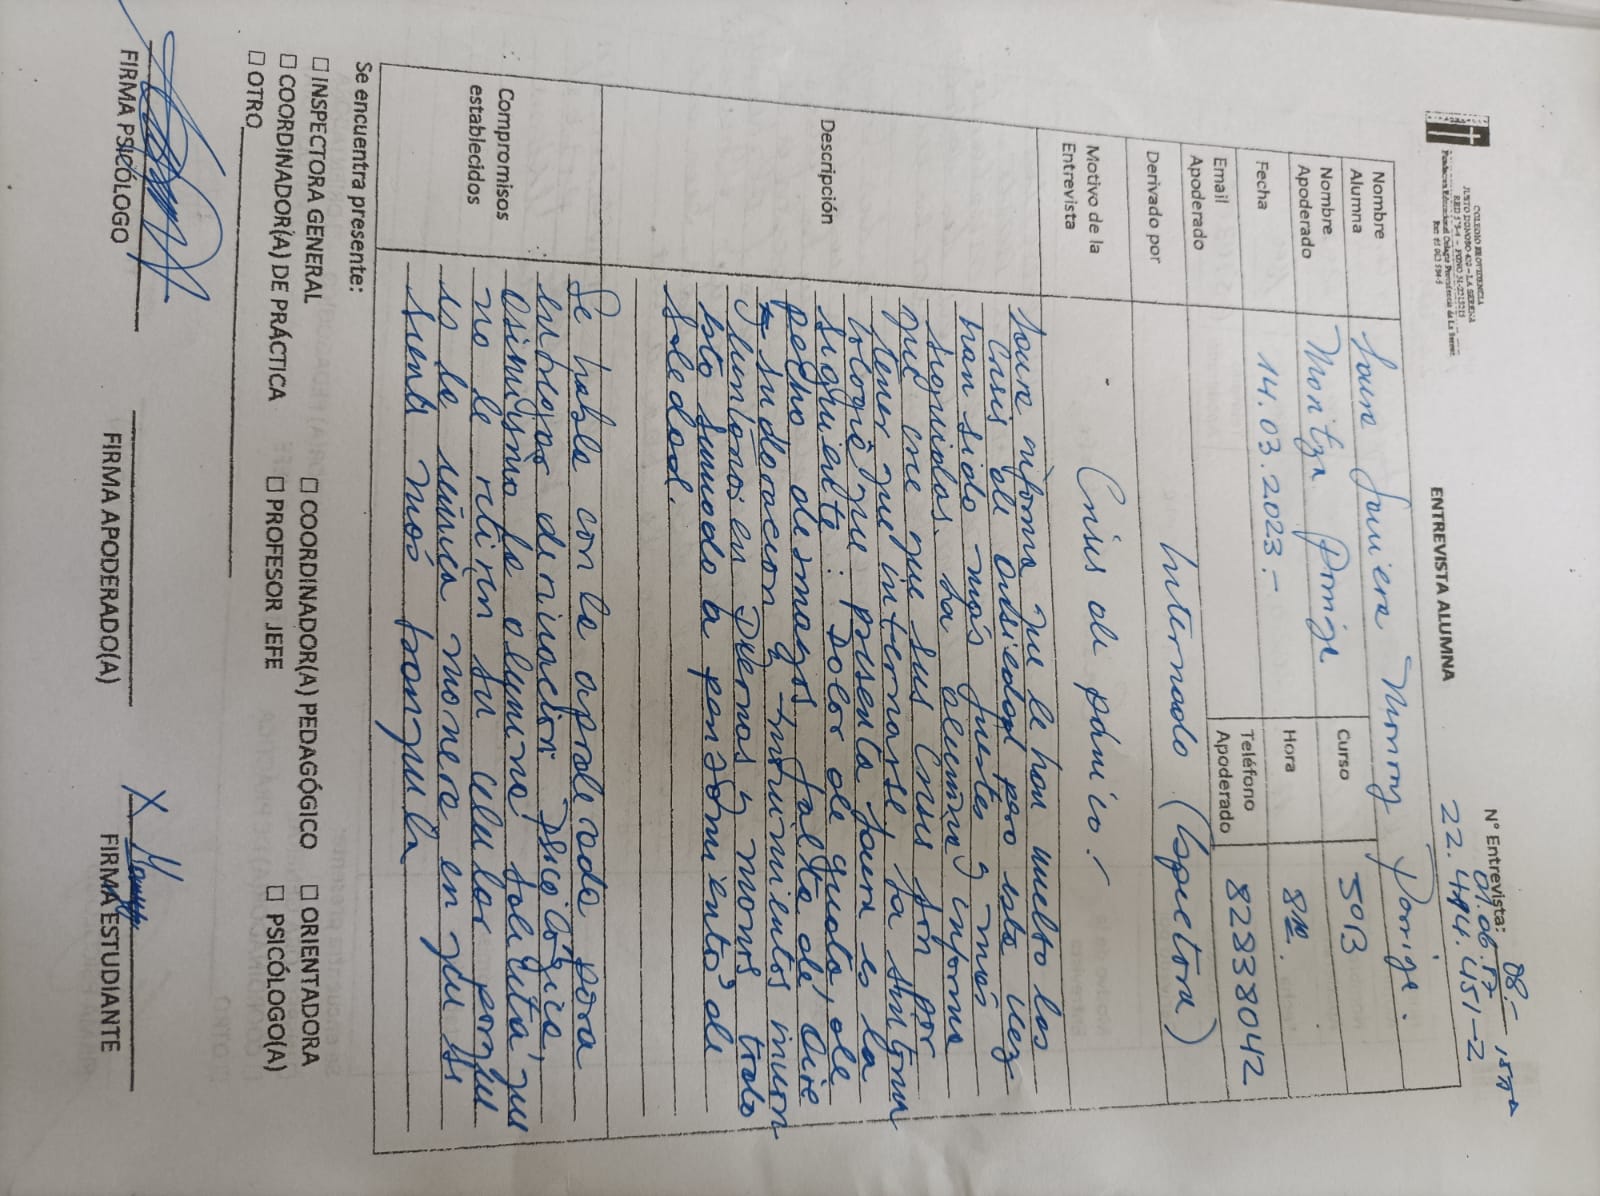 COLEGIO PROVIDENCIA
JUSTO DONOSO 420 – LA SERENA
Fundación Educacional Colegio Providencia de La Serena
ENTREVISTA ALUMNA
N° Entrevista: 08.-
01.06.07
22.494.451-2
Nombre Alumna
Monroy
Curso
3°B
Nombre Apoderado
Maritza
Hora
Fecha
14.03.2023.-
Teléfono Apoderado
82838042
Email Apoderado
Derivado por
Internado (Inspectora)
Motivo de la Entrevista
Crisis de pánico.-
Descripción
informa que le han vuelto las
crisis de ansiedad pero esta vez
han sido más fuertes y más
seguidas. La alumna informa
que cree que sus crisis son por
tener que internarse. La sintoma
tología que presenta es la
siguiente: Dolor de guata, de
pecho desmayos falta de aire
sudoración y
en piernas y manos todo
esto sumado a pensamientos de
soledad.
Compromisos establecidos
Se habla con la apoderada para
entregar derivación psicológica,
asimismo la alumna solicita que
no le retiren su celular porque
es la única manera en que se
siente más tranquila
Se encuentra presente:
☐ INSPECTORA GENERAL ☐ COORDINADOR(A) PEDAGÓGICO ☐ ORIENTADORA
☐ COORDINADOR(A) DE PRÁCTICA ☐ PROFESOR JEFE ☐ PSICÓLOGO(A)
☐ OTRO
FIRMA PSICÓLOGO FIRMA APODERADO(A) FIRMA ESTUDIANTE